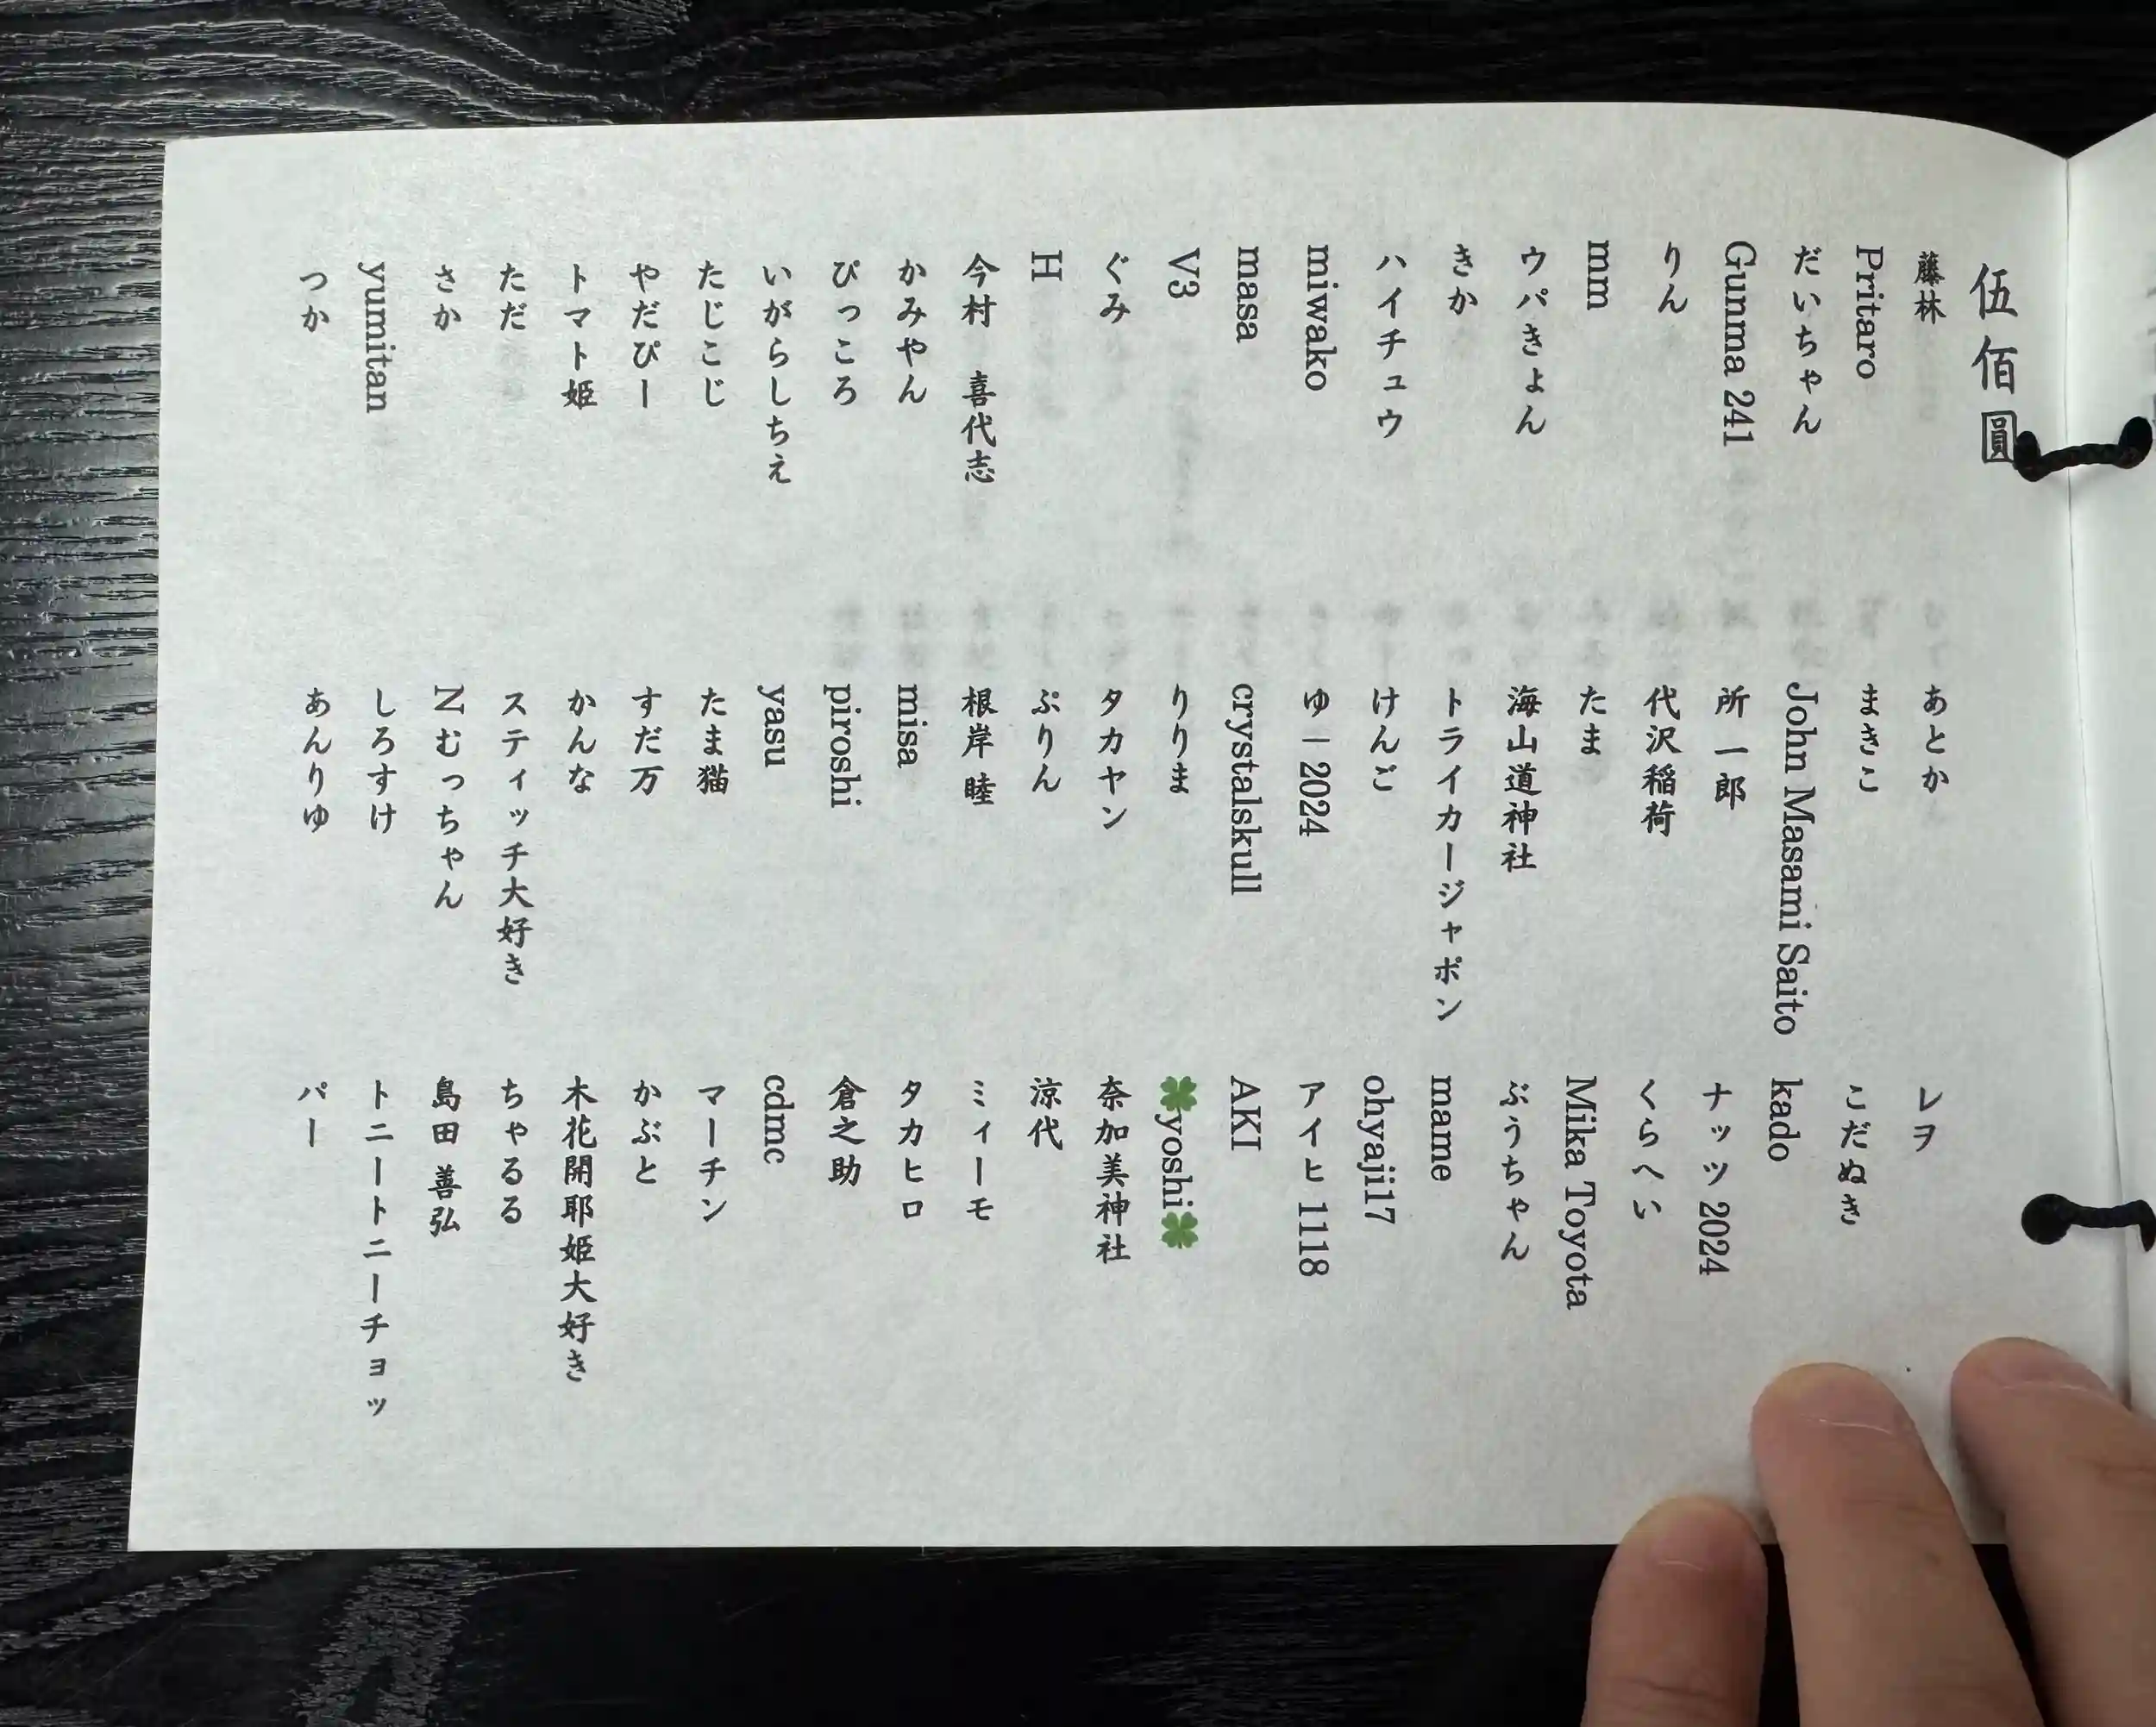 伍佰圓
藤林
Pritaro
だいちゃん
Gunma 241
りん
mm
ウパきょん
きか
ハイチュウ
miwako
masa
V3
ぐみ
H
今村 喜代志
かみやん
ぴっころ
いがらしちえ
たじこじ
やだぴー
トマト姫
ただ
さか
yumitan
つか
あとか
まきこ
John Masami Saito
所一郎
代沢稲荷
たま
海山道神社
トライカージャポン
けんこ
ゆー2024
crystalskull
りりま
タカヤン
ぷりん
根岸 睦
misa
piroshi
yasu
たま猫
すだ万
かんな
スティッチ大好き
Nむっちゃん
しろすけ
あんりゆ
レヲ
こだぬき
kado
ナッツ2024
くらへい
Mika Toyota
ぶうちゃん
mame
ohyaji17
アイヒ1118
AKI
🍀yoshi🍀
奈加美神社
涼代
ミィーモ
タカヒロ
倉之助
cdmc
マーチン
かぶと
木花開耶姫大好き
ちゃるる
島田 善弘
トニートニーチョッ
パー